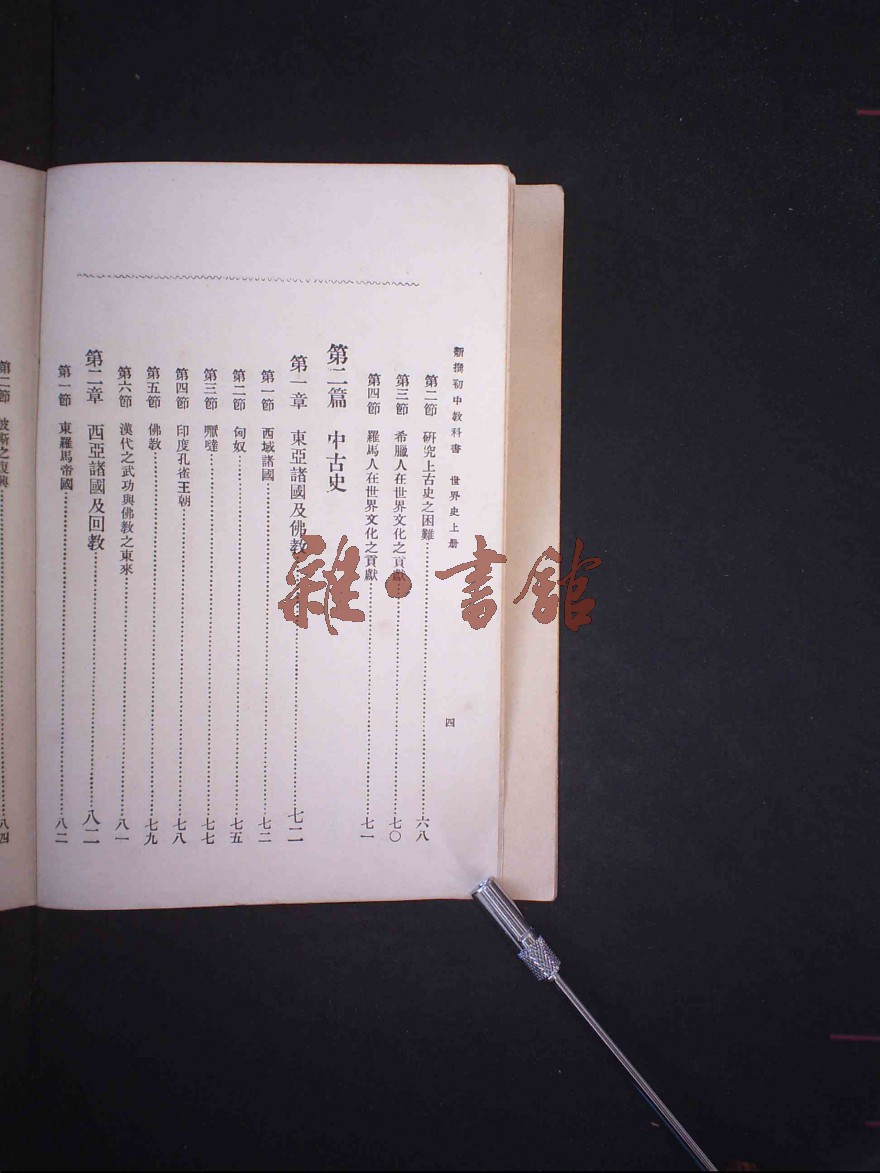 新撰初中教科書　世界史上册
四
第二節　研究上古史之困難……六八
第三節　希臘人在世界文化之貢獻……七〇
第四節　羅馬人在世界文化之貢獻……七一
第二篇　中古史
第一章　東亞諸國及佛教……七二
第一節　西域諸國……七二
第二節　匈奴……七五
第三節　嚈噠……七七
第四節　印度孔雀王朝……七八
第五節　佛教……七九
第六節　漢代之武功與佛教之東來……八一
第二章　西亞諸國及回教……八二
第一節　東羅馬帝國……八二
第二節　波斯之復興……八四
雜·書館